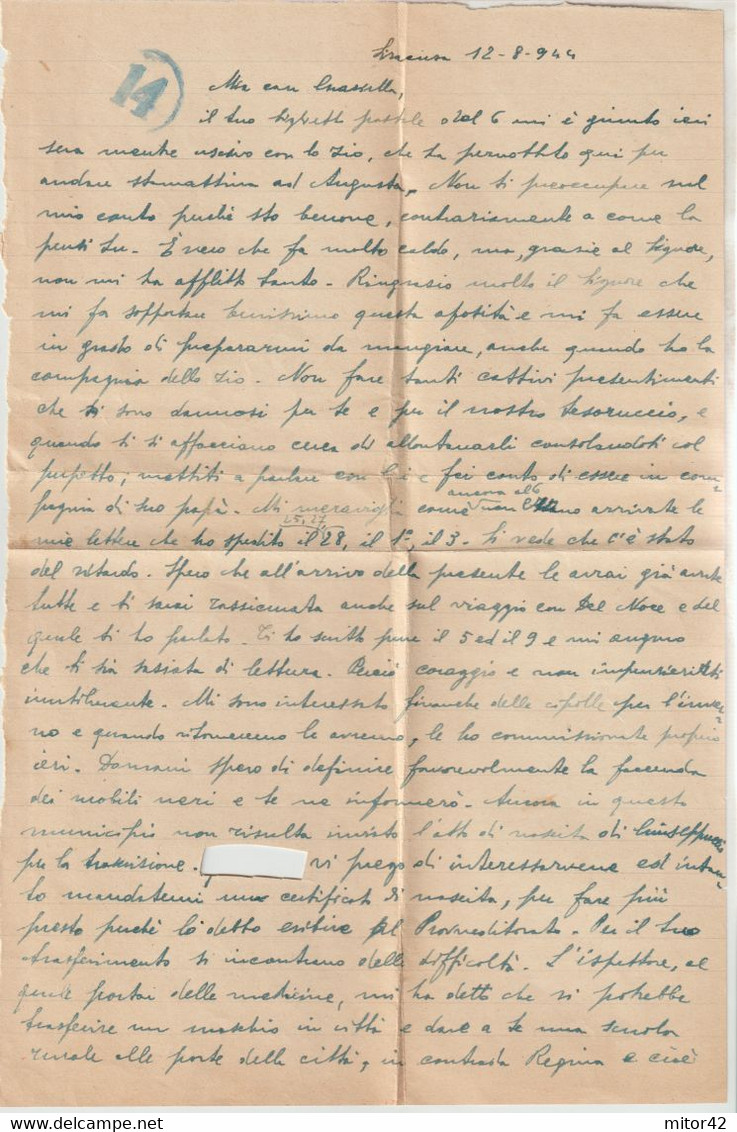 Siracusa 12-8-944
14
Mia cara Graziella,
il tuo biglietto postale del 6 mi è giunto ieri
sera mentre uscivo con lo zio, che ha pernottato qui per
andare stamattina ad Augusta. Non ti preoccupare sul
mio conto perché sto benone, contrariamente a come la
pensi tu. È vero che fa molto caldo, ma, grazie al Signore,
non mi ha afflitto tanto. Ringrazio molto il Signore che
mi fa sopportare benissimo questa afosità e mi fa essere
in grado di prepararmi da mangiare, anche quando ho la
compagnia dello zio. Non fare tanti cattivi presentimenti
che ti sono dannosi per te e per il nostro tesoruccio, e
quando ti si affacciano cerca di allontanarli consolandoti col
pupetto; mettiti a parlare con lui e fai conto di essere in com-
pagnia di suo papà. Mi meraviglio come ancora al 6 non erano arrivate le
25, 27
mie lettere che ho spedito il 28, il 1°, il 3. Si vede che c'è stato
del ritardo. Spero che all'arrivo della presente le avrai già avute
tutte e ti sarai rassicurata anche sul viaggio con Del Noce e del
quale ti ho parlato. Ti ho scritto pure il 5 ed il 9 e mi auguro
che ti sia saziata di lettura. Perciò coraggio e non impensierirti
inutilmente. Mi sono interessato finanche delle cipolle per l'inver-
no e quando ritorneremo le avremo, le ho commissionate proprio
ieri. Domani spero di definire favorevolmente la faccenda
dei mobili neri e te ne informerò. Ancora in questo
municipio non risulta inviato l'atto di nascita di Giuseppuccio
per la trascrizione. vi prego di interessarvene ed intan-
to mandatemi un certificato di nascita, per fare più
presto perché lo debbo esibire al Provveditorato. Per il tuo
trasferimento si incontrano delle difficoltà. L'ispettore, al
quale portai delle medicine, mi ha detto che si potrebbe
trasferire un maschio in città e dare a te una scuola
rurale alle porte della città, in contrada Regina e cioè
mitor42